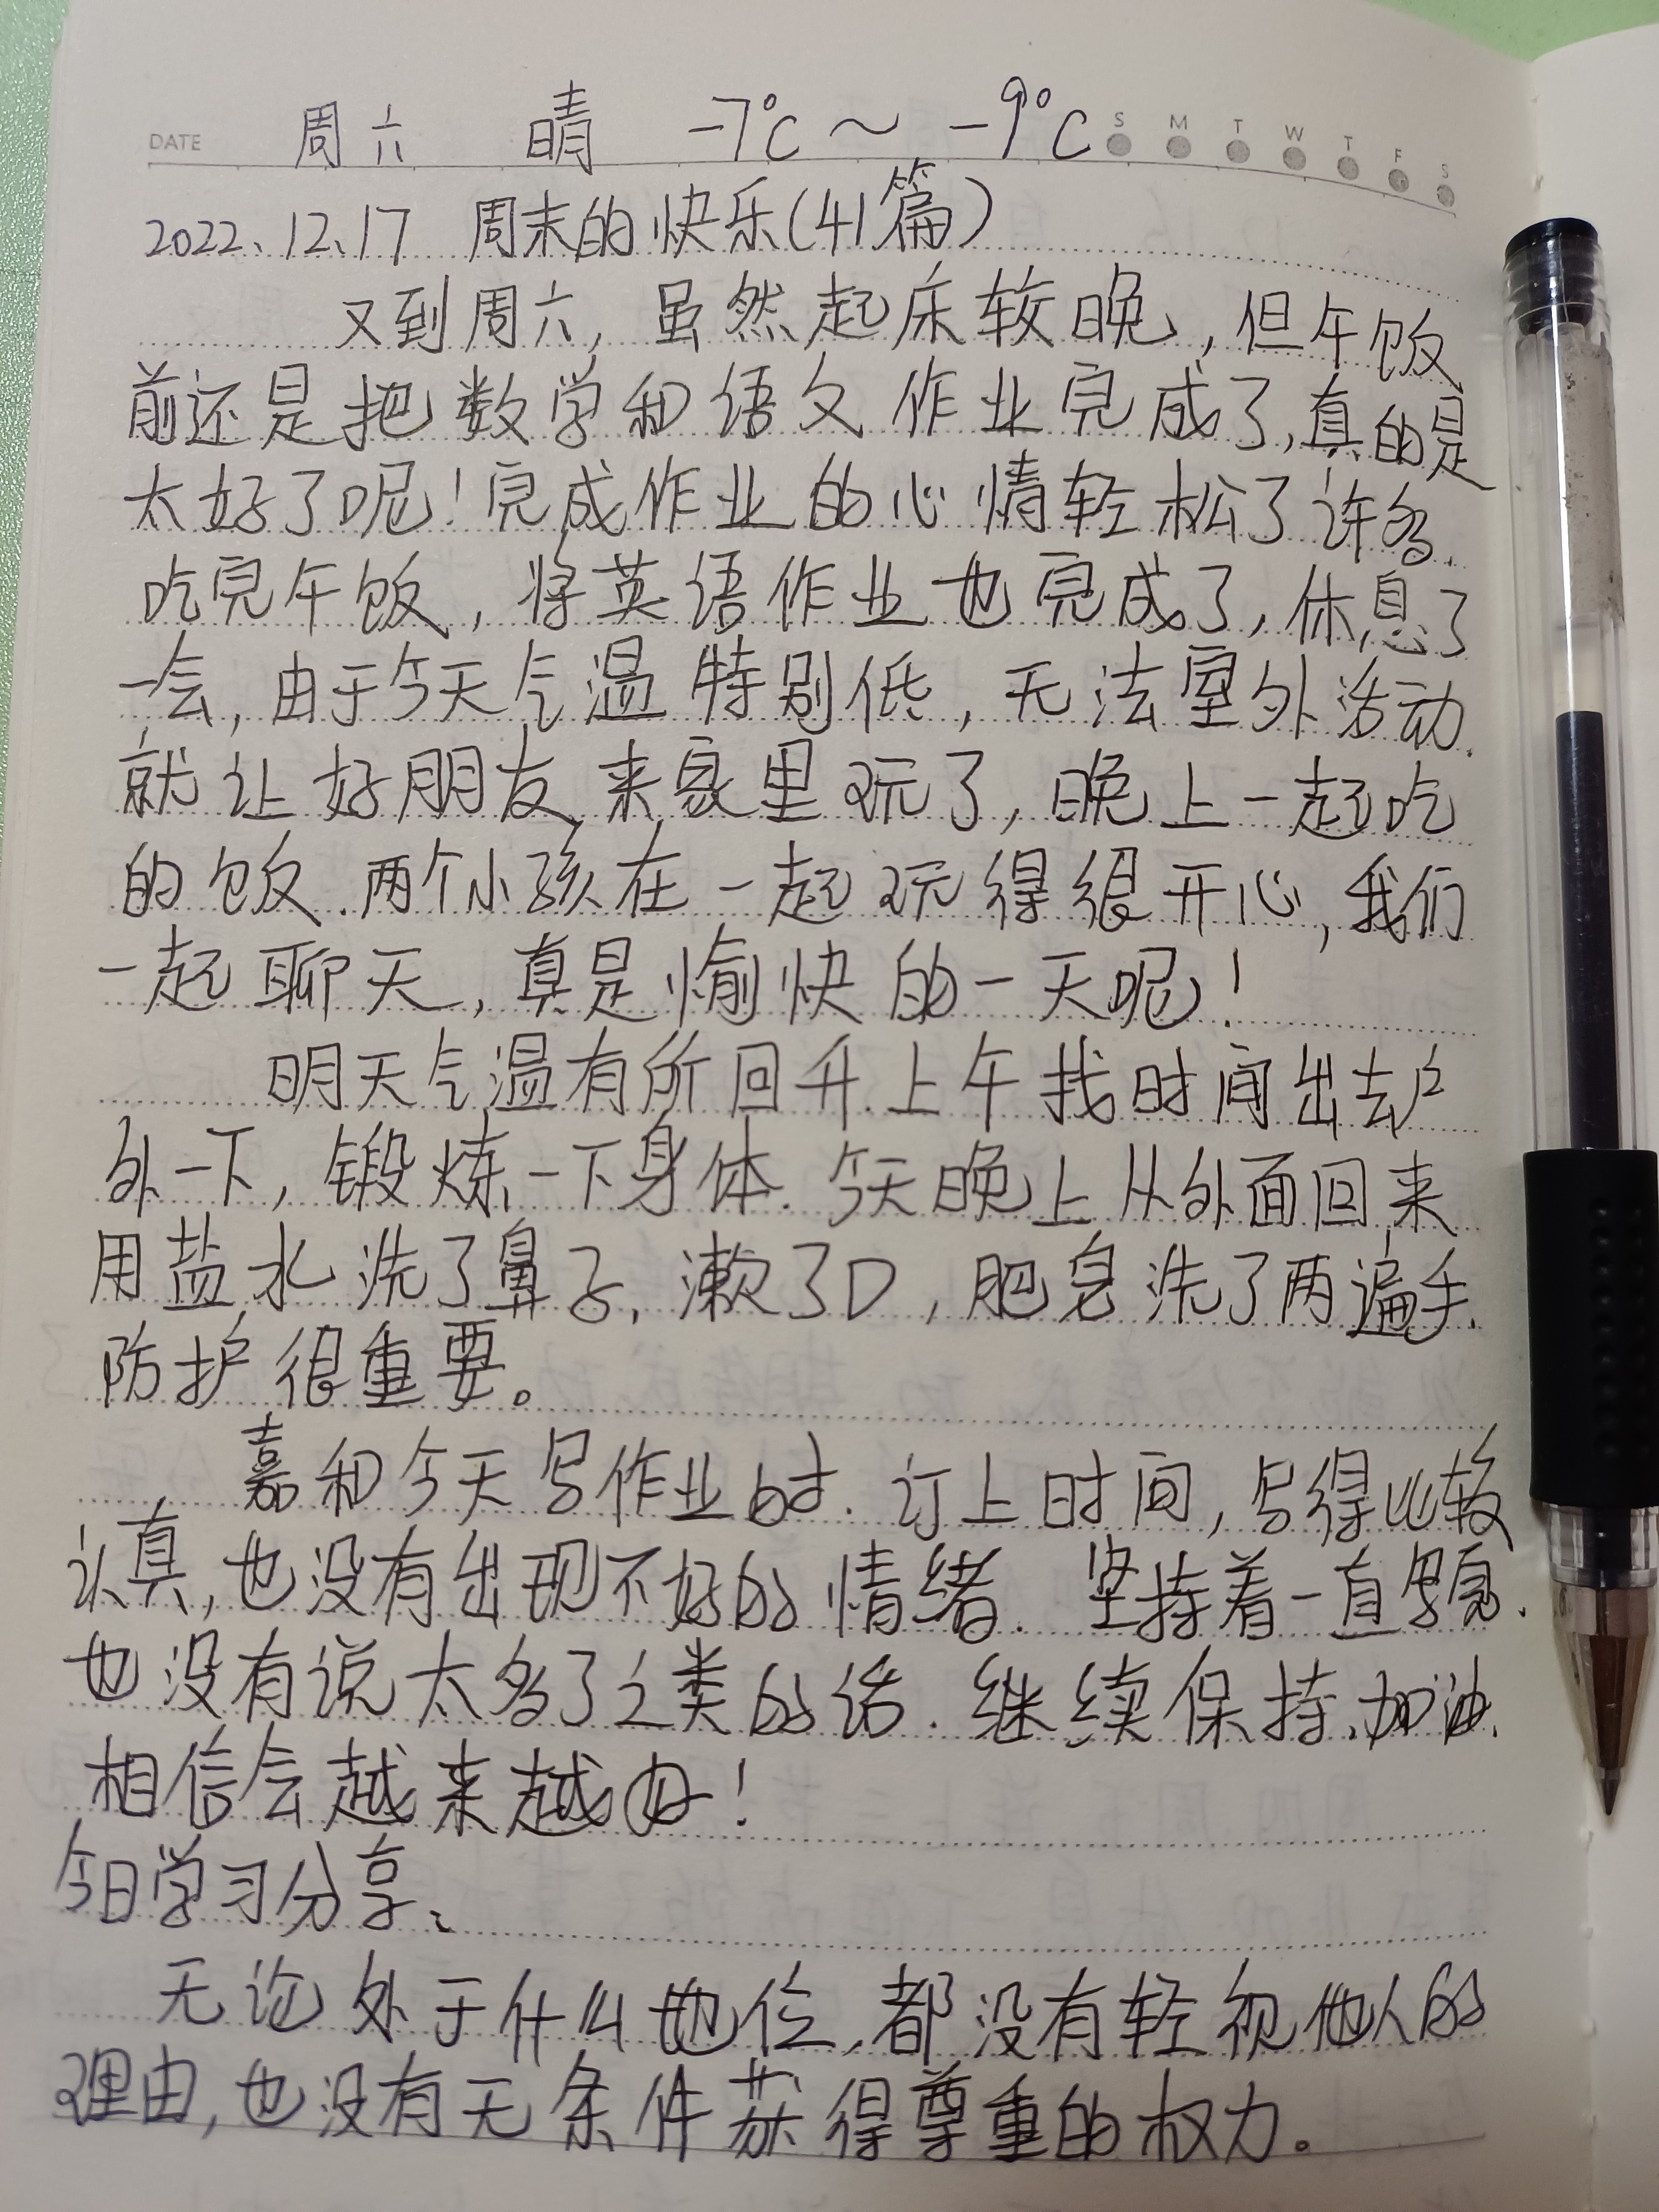 DATE 周六 晴 -7℃～-9℃ S M T W T F S
2022、12、17 周末的快乐(41篇)
又到周六，虽然起床较晚，但午饭
前还是把数学和语文作业完成了,真的是
太好了呢！完成作业的心情轻松了许多.
吃完午饭，将英语作业也完成了，休息了
一会，由于今天气温特别低，无法室外活动.
就让好朋友来家里玩了，晚上一起吃
的饭.两个小孩在一起玩得很开心，我们
一起聊天，真是愉快的一天呢！
明天气温有所回升.上午找时间出去户
外一下，锻炼一下身体.今天晚上从外面回来
用盐水洗了鼻子，漱了口，肥皂洗了两遍手.
防护很重要。
嘉和今天写作业时.订上时间，写得比较
认真，也没有出现不好的情绪.坚持着一直写完.
也没有说太多了之类的话.继续保持.加油.
相信会越来越好！
今日学习分享：
无论处于什么地位，都没有轻视他人的
理由，也没有无条件获得尊重的权力。